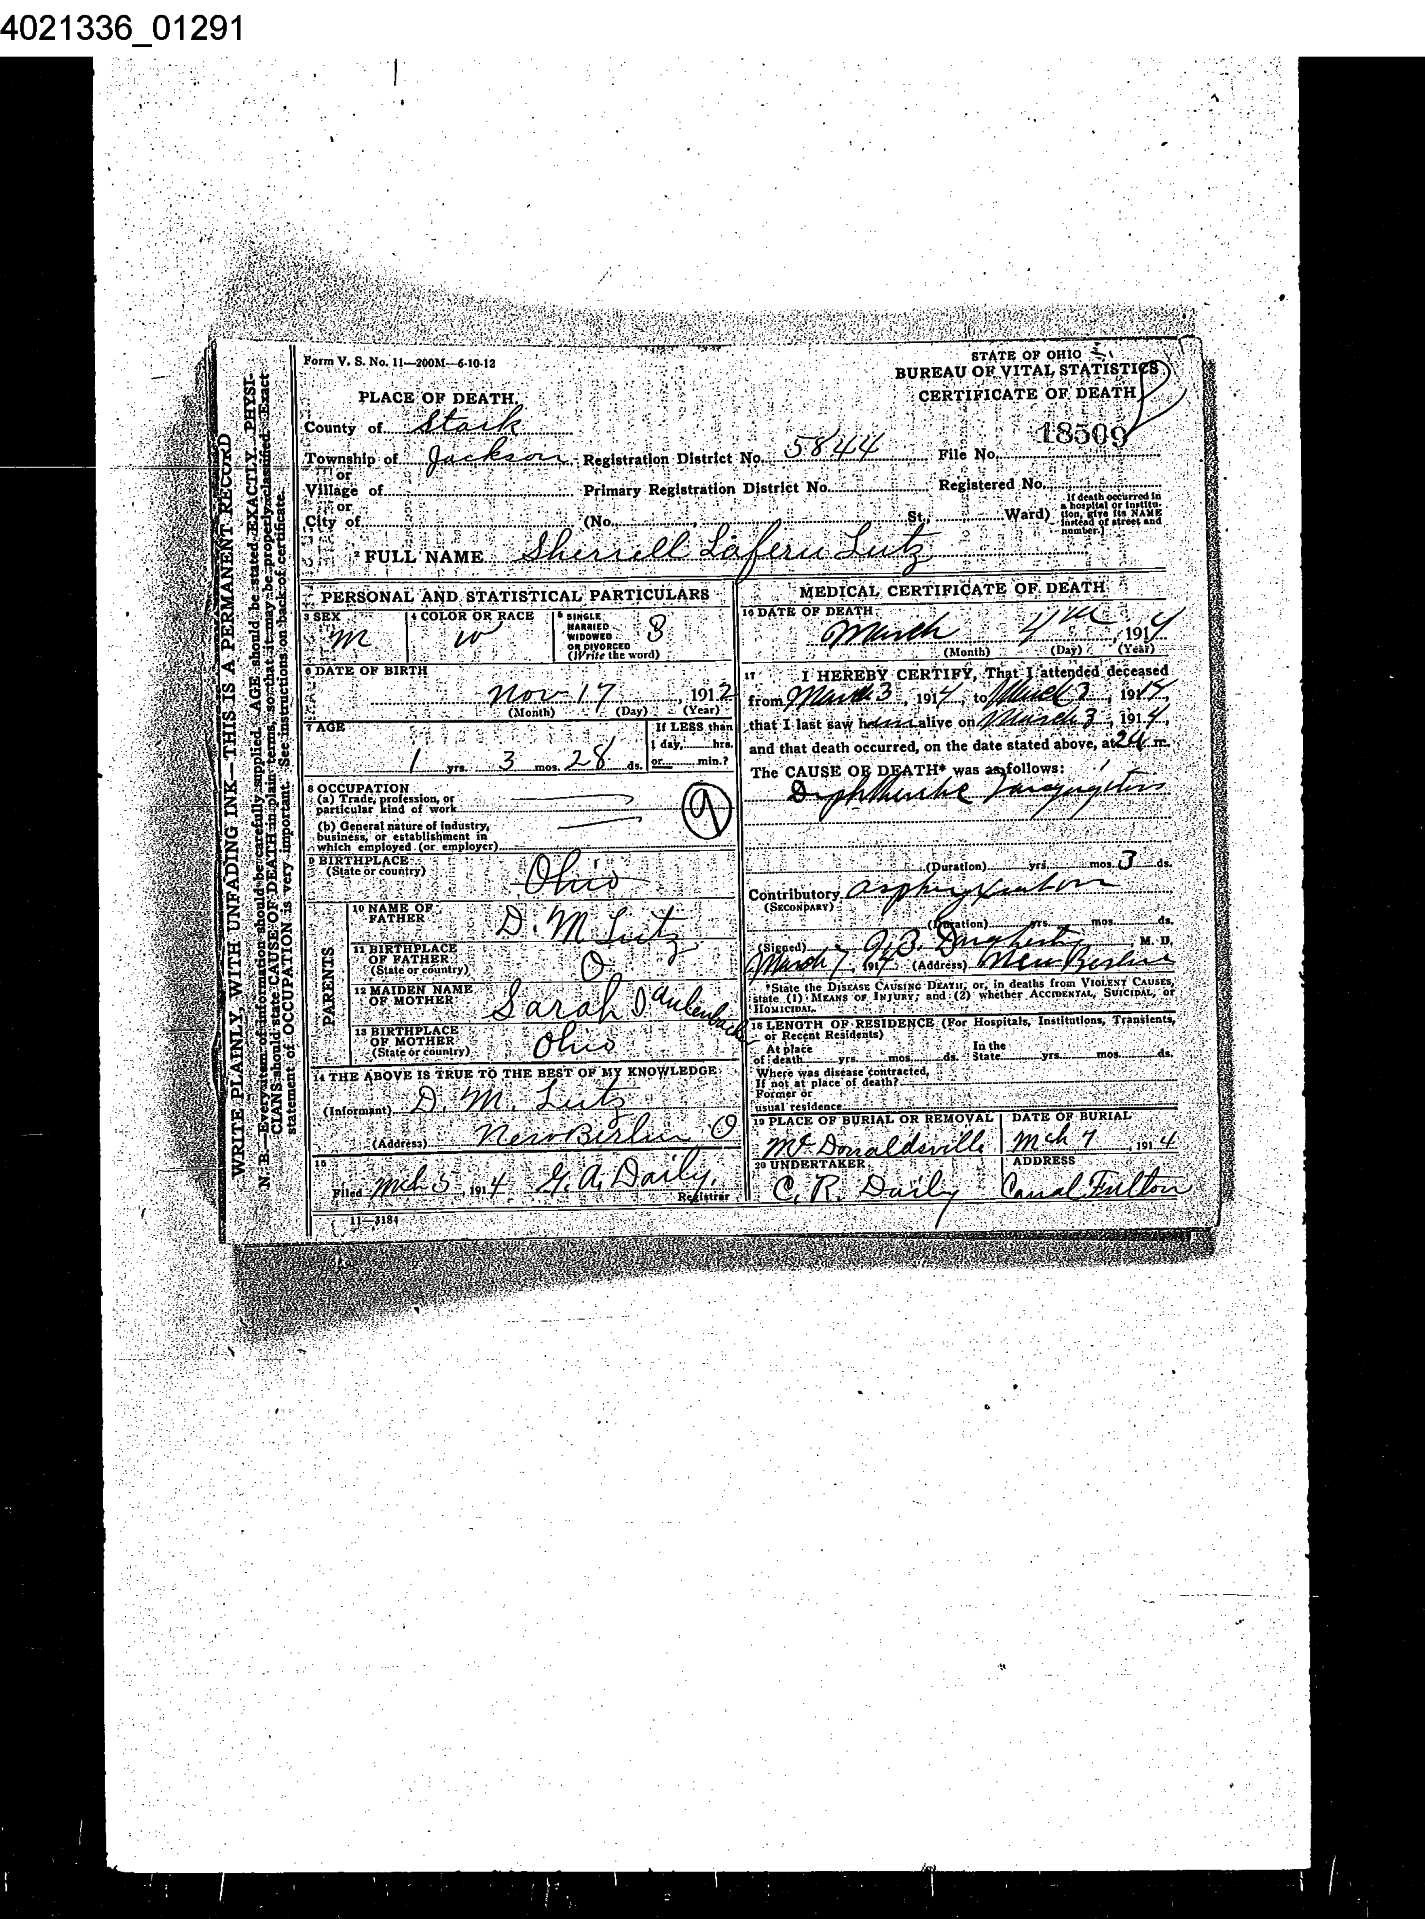 4021336_01291
Form V. S. No. 11—200M—6-10-12
STATE OF OHIO
BUREAU OF VITAL STATISTICS
CERTIFICATE OF DEATH
PLACE OF DEATH.
County of Stark
18509
Township of Jackson Registration District No. 5844 File No.
or
Village of Primary Registration District No. Registered No.
or
City of (No. , St., Ward) If death occurred in a hospital or institution, give its NAME instead of street and number.)
2 FULL NAME Sherrell Laferu Lutz
PERSONAL AND STATISTICAL PARTICULARS
3 SEX M
4 COLOR OR RACE W
5 SINGLE MARRIED WIDOWED OR DIVORCED (Write the word) S
6 DATE OF BIRTH
Nov 17, 1912
(Month) (Day) (Year)
7 AGE
If LESS than 1 day, hrs. or min.?
1 yrs. 3 mos. 28 ds.
8 OCCUPATION
(a) Trade, profession, or
particular kind of work
9
(b) General nature of industry,
business, or establishment in
which employed (or employer)
9 BIRTHPLACE
(State or country) Ohio
PARENTS
10 NAME OF FATHER D. M Lutz
11 BIRTHPLACE OF FATHER (State or country) O
12 MAIDEN NAME OF MOTHER Sarah Daulenbach
13 BIRTHPLACE OF MOTHER (State or country) Ohio
14 THE ABOVE IS TRUE TO THE BEST OF MY KNOWLEDGE
(Informant) D. M. Lutz
(Address) New Berlin O
15
Filed Mch 5, 1914 G. A. Daily, Registrar
11—3184
MEDICAL CERTIFICATE OF DEATH
16 DATE OF DEATH
March 4th, 1914
(Month) (Day) (Year)
17 I HEREBY CERTIFY, That I attended deceased
from March 3, 1914, to March 3, 1914,
that I last saw him alive on March 3, 1914,
and that death occurred, on the date stated above, at m.
The CAUSE OF DEATH* was as follows:
Diphtheritic Laryngitis
(Duration) yrs. mos. 3 ds.
Contributory asphyxiation
(SECONDARY)
(Duration) yrs. mos. ds.
(Signed) J. B. Dougherty M. D.
March 7, 1914 (Address) New Berlin
*State the DISEASE CAUSING DEATH, or, in deaths from VIOLENT CAUSES,
state (1) MEANS OF INJURY; and (2) whether ACCIDENTAL, SUICIDAL, or
HOMICIDAL.
18 LENGTH OF RESIDENCE (For Hospitals, Institutions, Transients,
or Recent Residents)
At place of death yrs. mos. ds. In the State yrs. mos. ds.
Where was disease contracted,
If not at place of death?
Former or
usual residence
19 PLACE OF BURIAL OR REMOVAL McDonaldsville
DATE OF BURIAL Mch 7, 1914
20 UNDERTAKER C. R. Daily
ADDRESS Canal Fulton
WRITE PLAINLY, WITH UNFADING INK—THIS IS A PERMANENT RECORD
N. B.—Every item of information should be carefully supplied. AGE should be stated EXACTLY. PHYSI-
CIANS should state CAUSE OF DEATH in plain terms, so that it may be properly classified. Exact
statement of OCCUPATION is very important. See instructions on back of certificate.